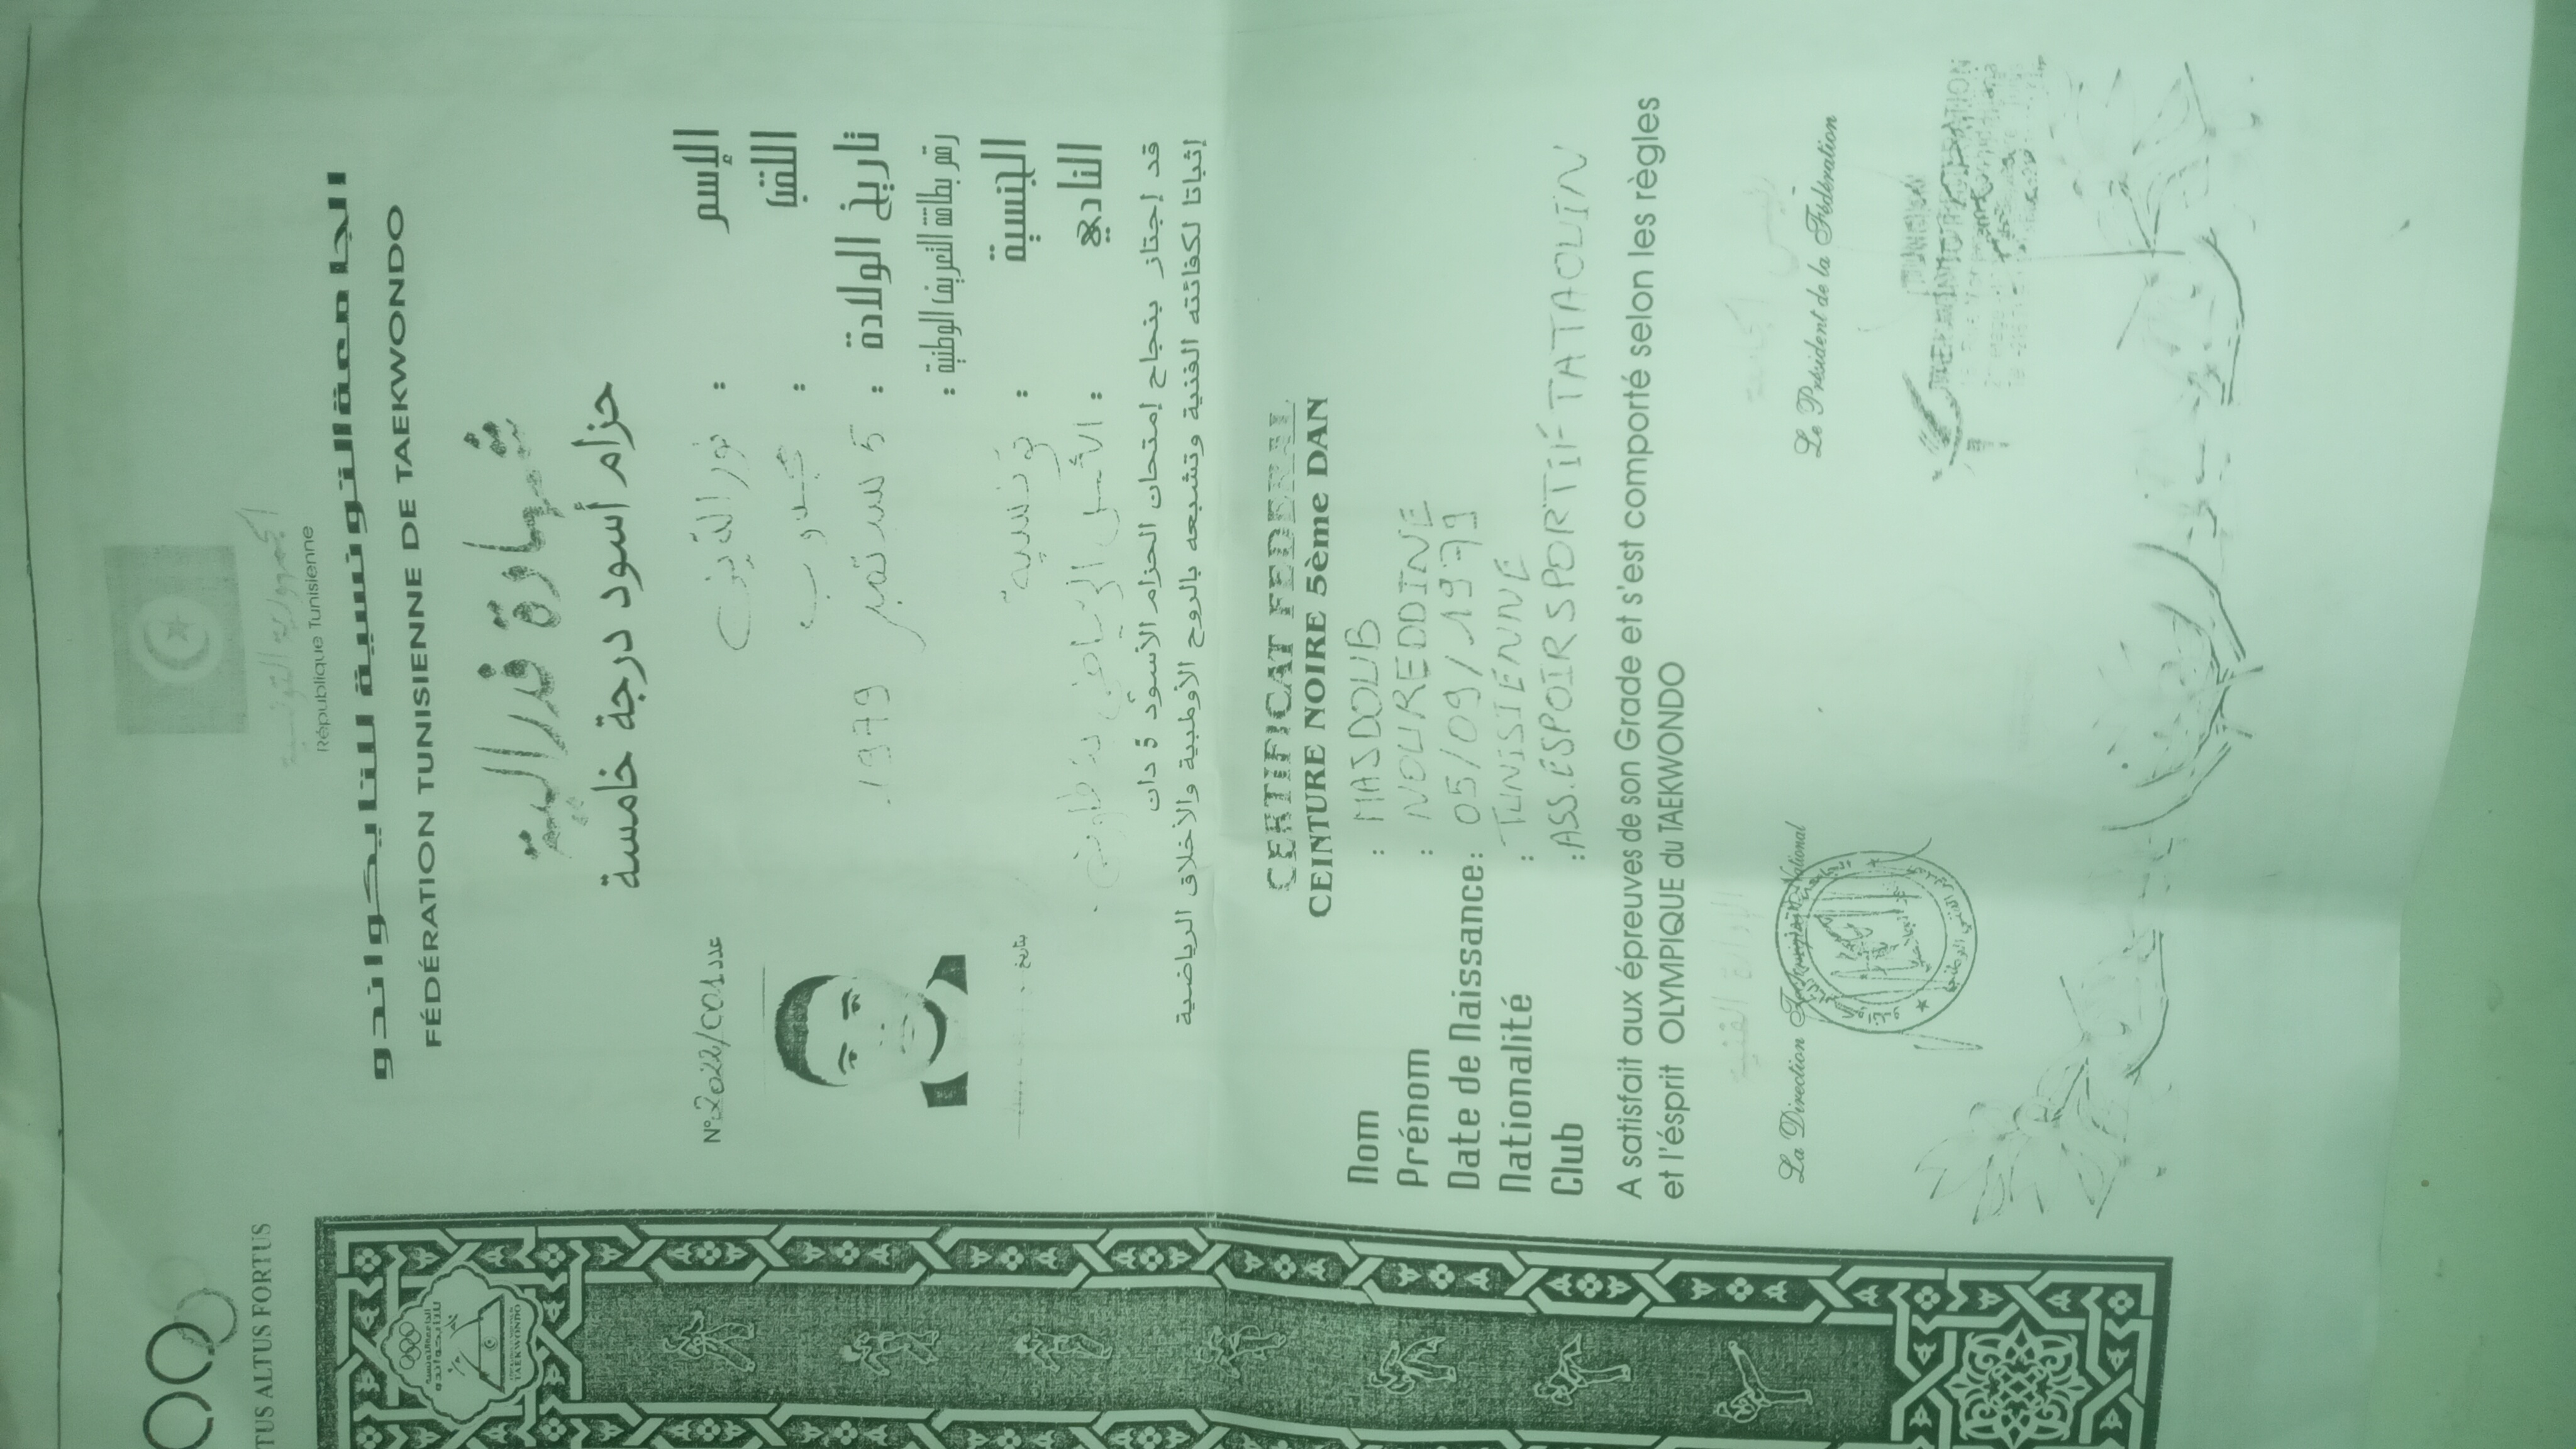 TUS ALTUS FORTUS
الجمهورية التونسية
République Tunisienne
الجامعة التونسية للتايكواندو
FÉDÉRATION TUNISIENNE DE TAEKWONDO
شهادة فدرالية
حزام أسود درجة خامسة
N°:2022/001 عدد
الإسم : نور الدين
اللقب : مجدوب
تاريخ الولادة : 5 سبتمبر 1979
رقم بطاقة التعريف الوطنية :
الجنسية : تونسية
النادي : الأمل الرياضي بتطاوين
بتاريخ
قد إجتاز بنجاح إمتحان الحزام الأسود 5 دان
إثباتا لكفائته الفنية وتشبعه بالروح الأولمبية والأخلاق الرياضية
CERTIFICAT FEDERAL
CEINTURE NOIRE 5ème DAN
Nom : MAJDOUB
Prénom : NOUREDDINE
Date de Naissance: 05/09/1979
Nationalité : TUNISIENNE
Club : ASS.ESPOIR SPORTIF TATAOUIN
A satisfait aux épreuves de son Grade et s'est comporté selon les règles
et l'ésprit OLYMPIQUE du TAEKWONDO
الإدارة الفنية
رئيس الجامعة
La Direction Technique National
Le Président de la Fédération
TAEKWONDO